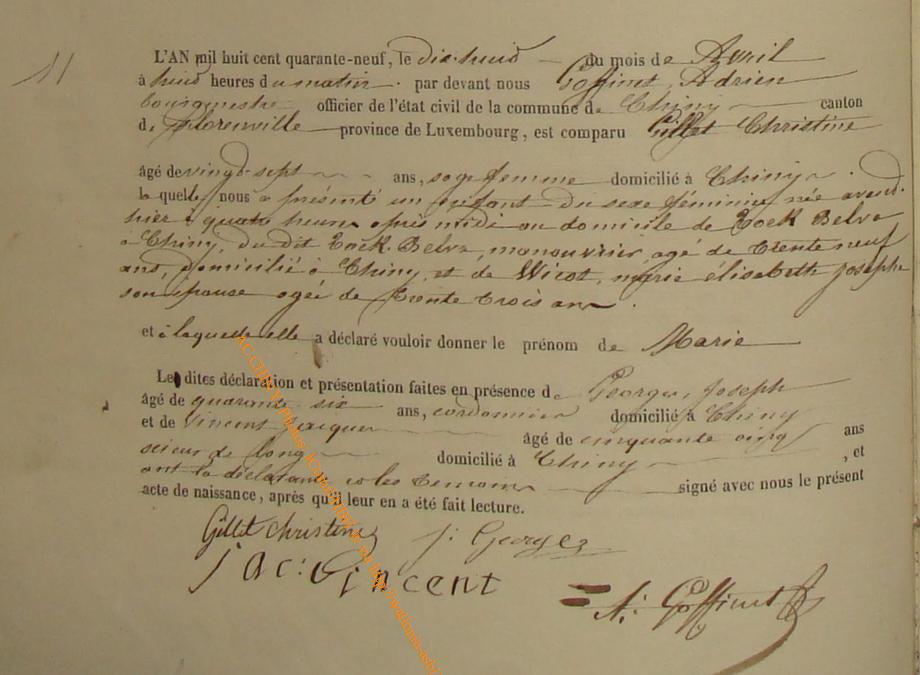 11
L'AN mil huit cent quarante-neuf, le dix-huid du mois de Avril
à huid heures du matin par devant nous Goffinet, Adrien
bourgmestre officier de l'état civil de la commune de Chiny canton
de florenville province de Luxembourg, est comparu Gillet Christine
âgé de vingt-sept ans, sage femme domicilié à Chiny
la quelle nous a présenté un enfant du sexe féminin née avend-
hier à quatre heures après midi au domicile de Tock Belve
à Chiny, du dit Tock Belve, manouvrier, agé de trente neuf
ans, domicilié à Chiny et de Wicot, marie élisabeth Joseph
son épouse agée de trente trois ans.
et à laquelle elle a déclaré vouloir donner le prénom de Marie
Les dites déclaration et présentation faites en présence de Georges, Joseph
âgé de quarante six ans, cordonnier domicilié à Chiny
et de Vincent Jacques âgé de cinquante cinq ans
scieur de long domicilié à Chiny, et
ont la déclarante et les temoins signé avec nous le présent
acte de naissance, après qu'il leur en a été fait lecture.
Gillet christine J: Georges
Jac: Vincent
A: Goffinet